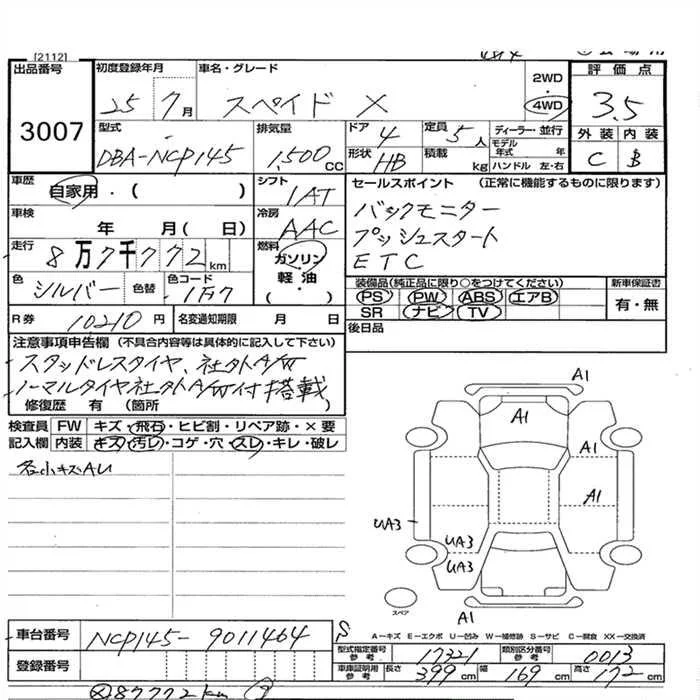 [2112]
出品番号 初度登録年月 車名・グレード 2WD 評価点
3007 25 7月 スペイド X 4WD 3.5
外装 内装
C B
型式 排気量 ドア 4 定員 5人 ディーラー・並行
DBA-NCP145 1,500cc 形状 HB 積載 kg モデル年式 年
ハンドル 左・右
車歴 自家用・( ) シフト 1AT セールスポイント (正常に機能するものに限ります)
車検 年 月( 日) 冷房 AAC バックモニター
プッシュスタート
走行 8万7千772km 燃料 ガソリン 軽油 ( ・ ) ETC
色 シルバー 色替 色コード 1F7 装備品(純正品に限り○をつけてください) 新車保証書
PS PW ABS エアB 有・無
SR ナビ TV
R券 10210円 名変通知期限 月 日 後日品
注意事項申告欄 (不具合内容等は具体的に記入して下さい)
スタッドレスタイヤ、社外A/W
ノーマルタイヤ社外A/W付搭載
修復歴 有 (箇所 )
検査員 FW キズ・飛石・ヒビ割・リペア跡・×要
記入欄 内装 キズ・汚レ・コゲ・穴・スレ・キレ・破レ
各小キズAU
A1
A1
A1
A1
UA3
UA3
UA3
A1
スペア
A−キズ E−エクボ U−凹み W−補修跡 S−サビ C−腐食 XX−交換済
車台番号 NCP145-9011464
登録番号
型式指定番号 参考 17321 類別区分番号 参考 0013
車庫証明用 参考 長さ 399cm 幅 169cm 高さ 172cm
87772km